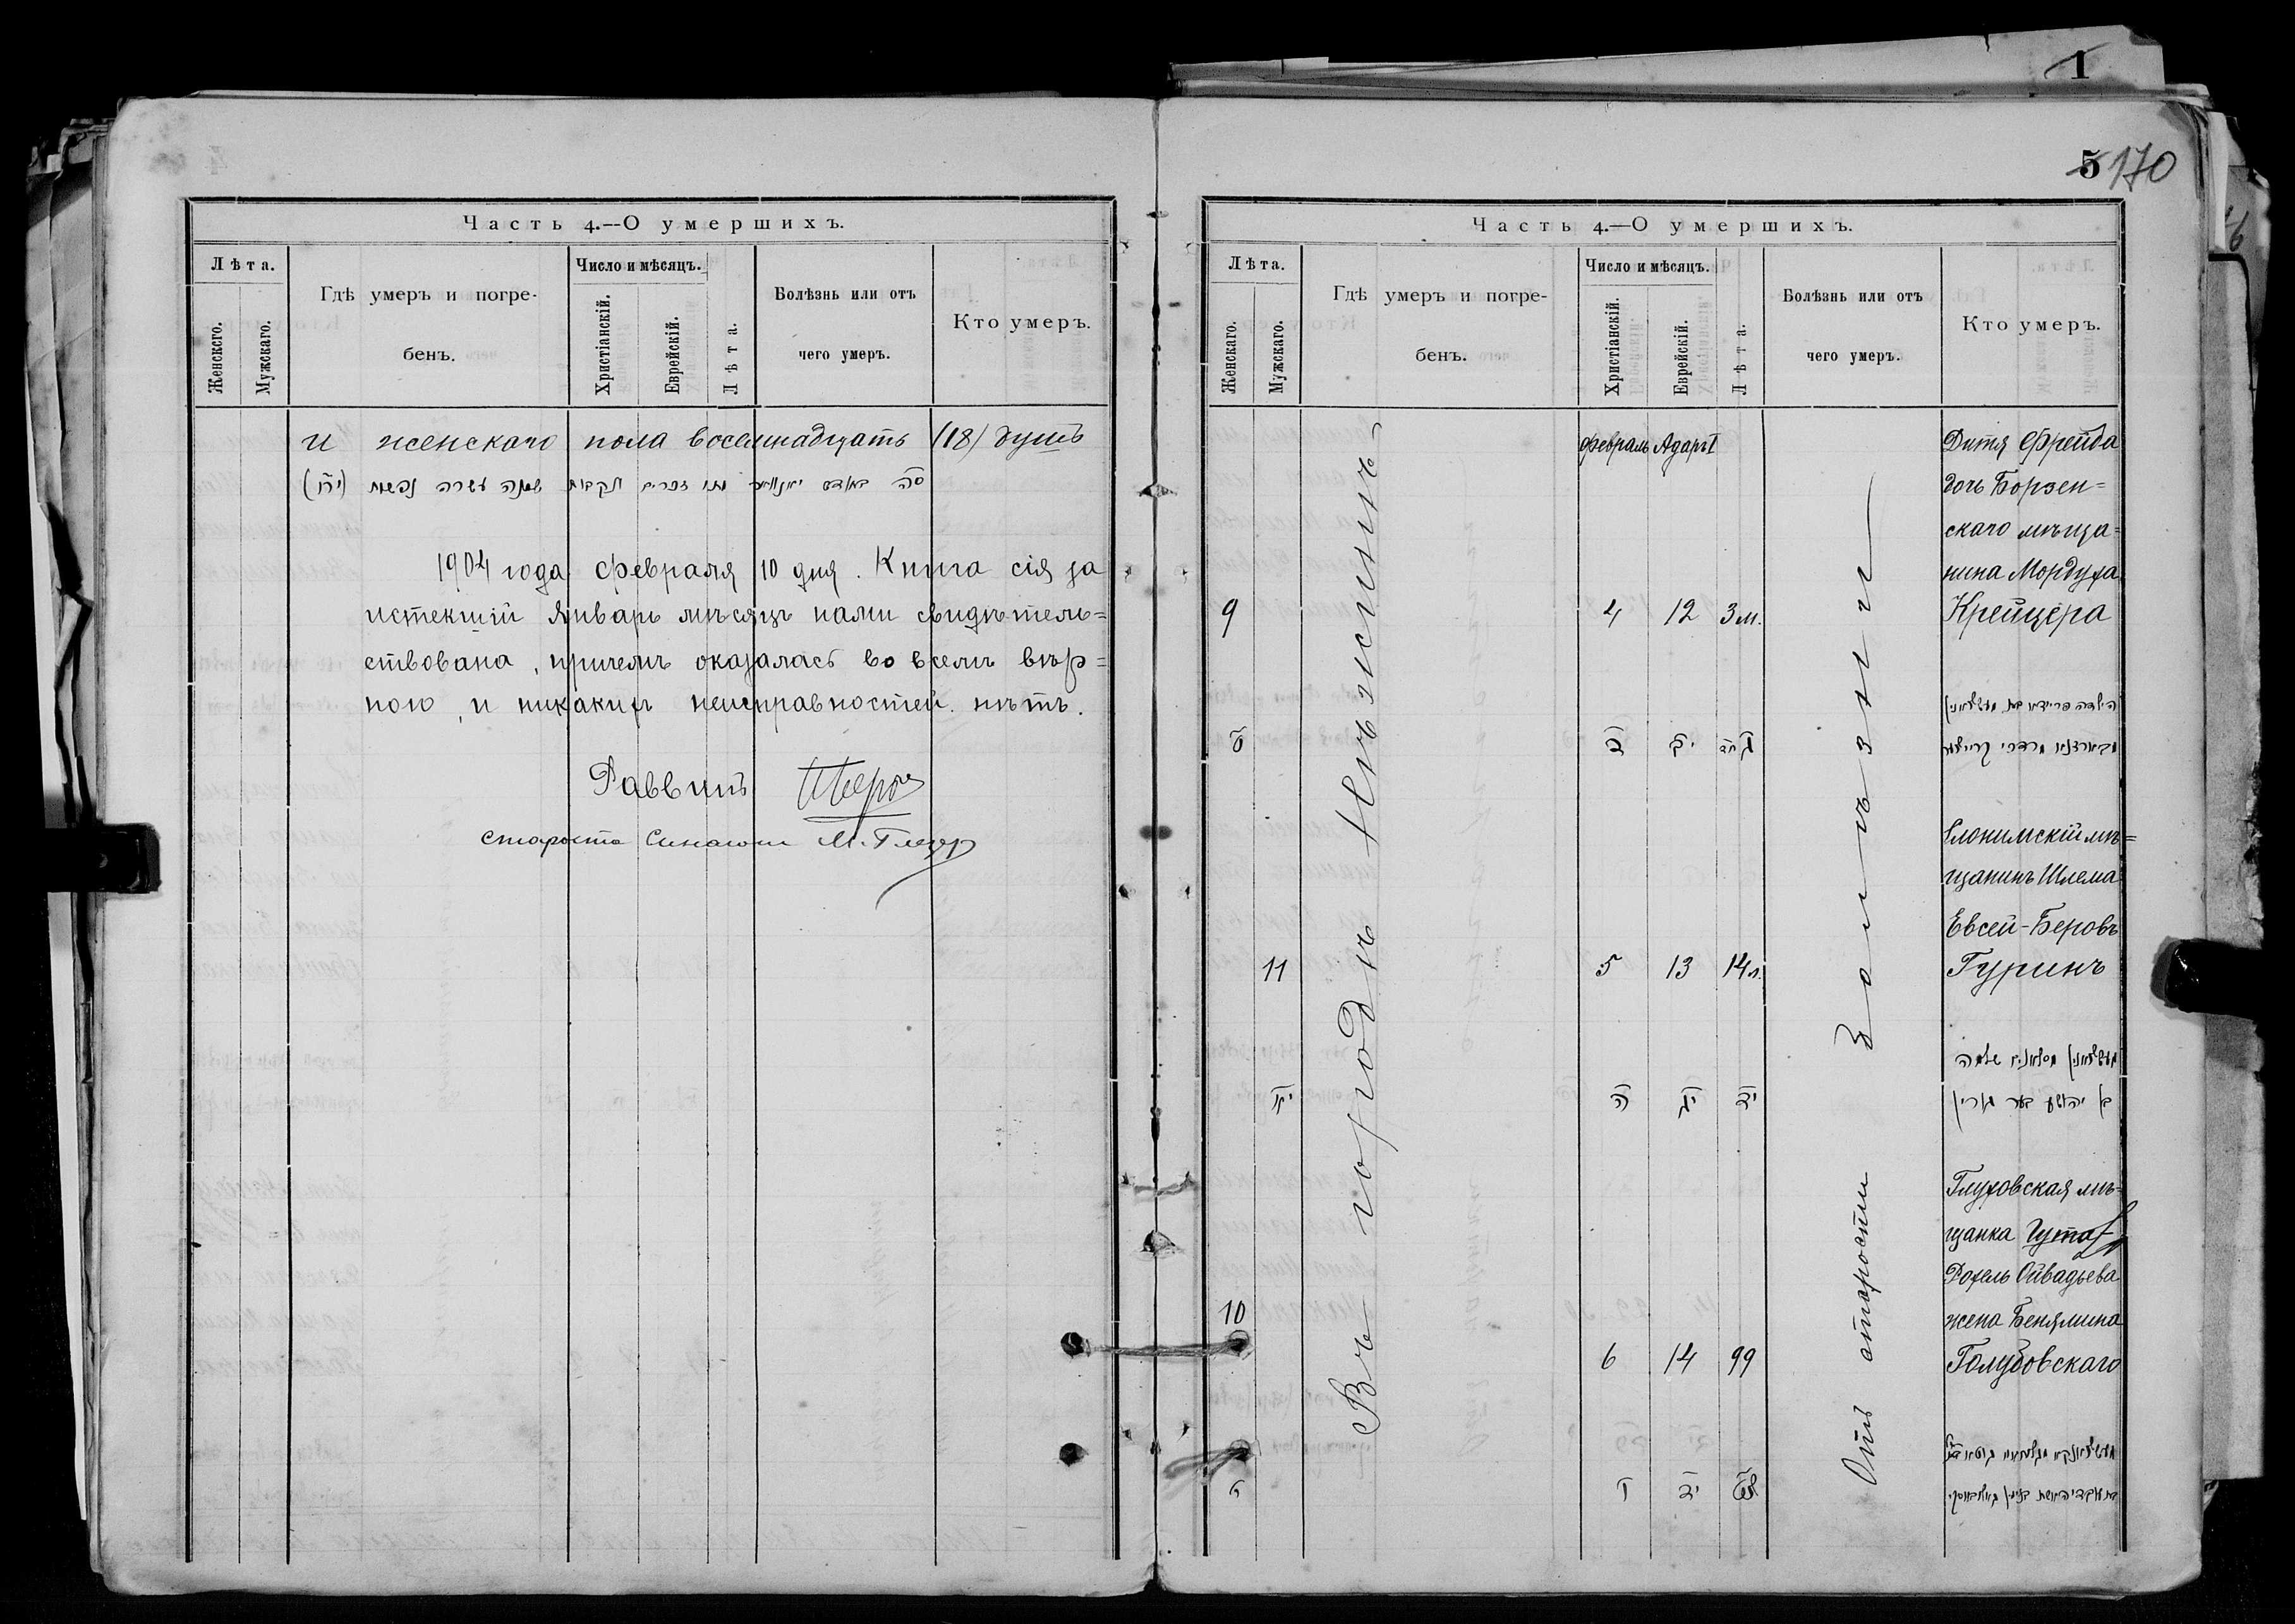 1
5 170
Часть 4.—О умершихъ.
Лѣта.
Женскго.
Мужскаго.
Гдѣ умеръ и погре-
бенъ.
Число и мѣсяцъ.
Христіанскій.
Еврейскій.
Лѣта.
Болѣзнь или отъ
чего умеръ.
Кто умеръ.
и женскаго пола восемнадцать (18) душъ
1904 года февраля 10 дня. Книга сія за
истекшій Январь мѣсяцъ нами свидѣтель=
ствована, причемъ оказалась во всемъ вѣр=
ною, и никакихъ неисправностей нѣтъ.
Раввинъ
Староста Синагоги М. Глезер
Часть 4.—О умершихъ.
Лѣта.
Женскаго.
Мужскаго.
Гдѣ умеръ и погре-
бенъ.
Число и мѣсяцъ.
Христіанскій.
Еврейскій.
Лѣта.
Болѣзнь или отъ
чего умеръ.
Кто умеръ.
Въ городѣ Нѣжинѣ
Февраль Адаръ I
Болѣзни
Дитя Фрейда
дочь Борзен=
скаго мѣща=
нина Мордуха
9 4 12 3 м. Крейцера
ט ד יב
Слонимскій мѣ=
щанинъ Шлема
Евсей-Беровъ
11 5 13 14 л. Гуринъ
יא ה יג יד
בן יהושע בער גורין
Отъ старости
Глуховская мѣ-
щанка Гута
Рохель Овадьева
10 жена Бенямина
6 14 99 Голубовскаго
י ו יד צט